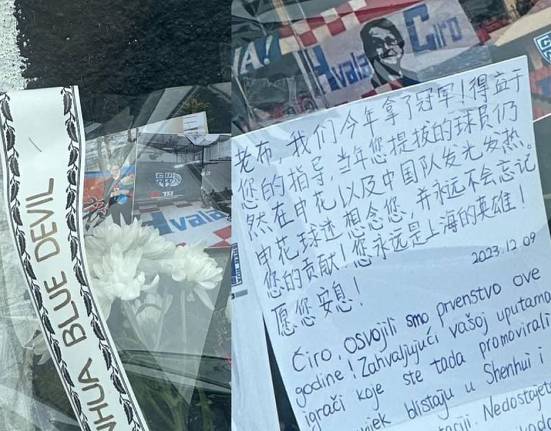 NHUA BLUE DEVIL
Hvala
A!
Hvala Ciro
老布，我们今年拿了冠军！得益于
您的指导，当年您提拔的球员仍
然在申花以及中国队发光发热。
申花球迷想念您，并永远不会忘记
您的贡献！您永远是上海的英雄！
愿您安息！
2023.12.09
Ćiro, osvojili smo prvenstvo ove
godine! Zahvaljujući vašoj uputama
igrači koje ste tada promovirali
ijek blistaju u Shenhui i
Nedostajet